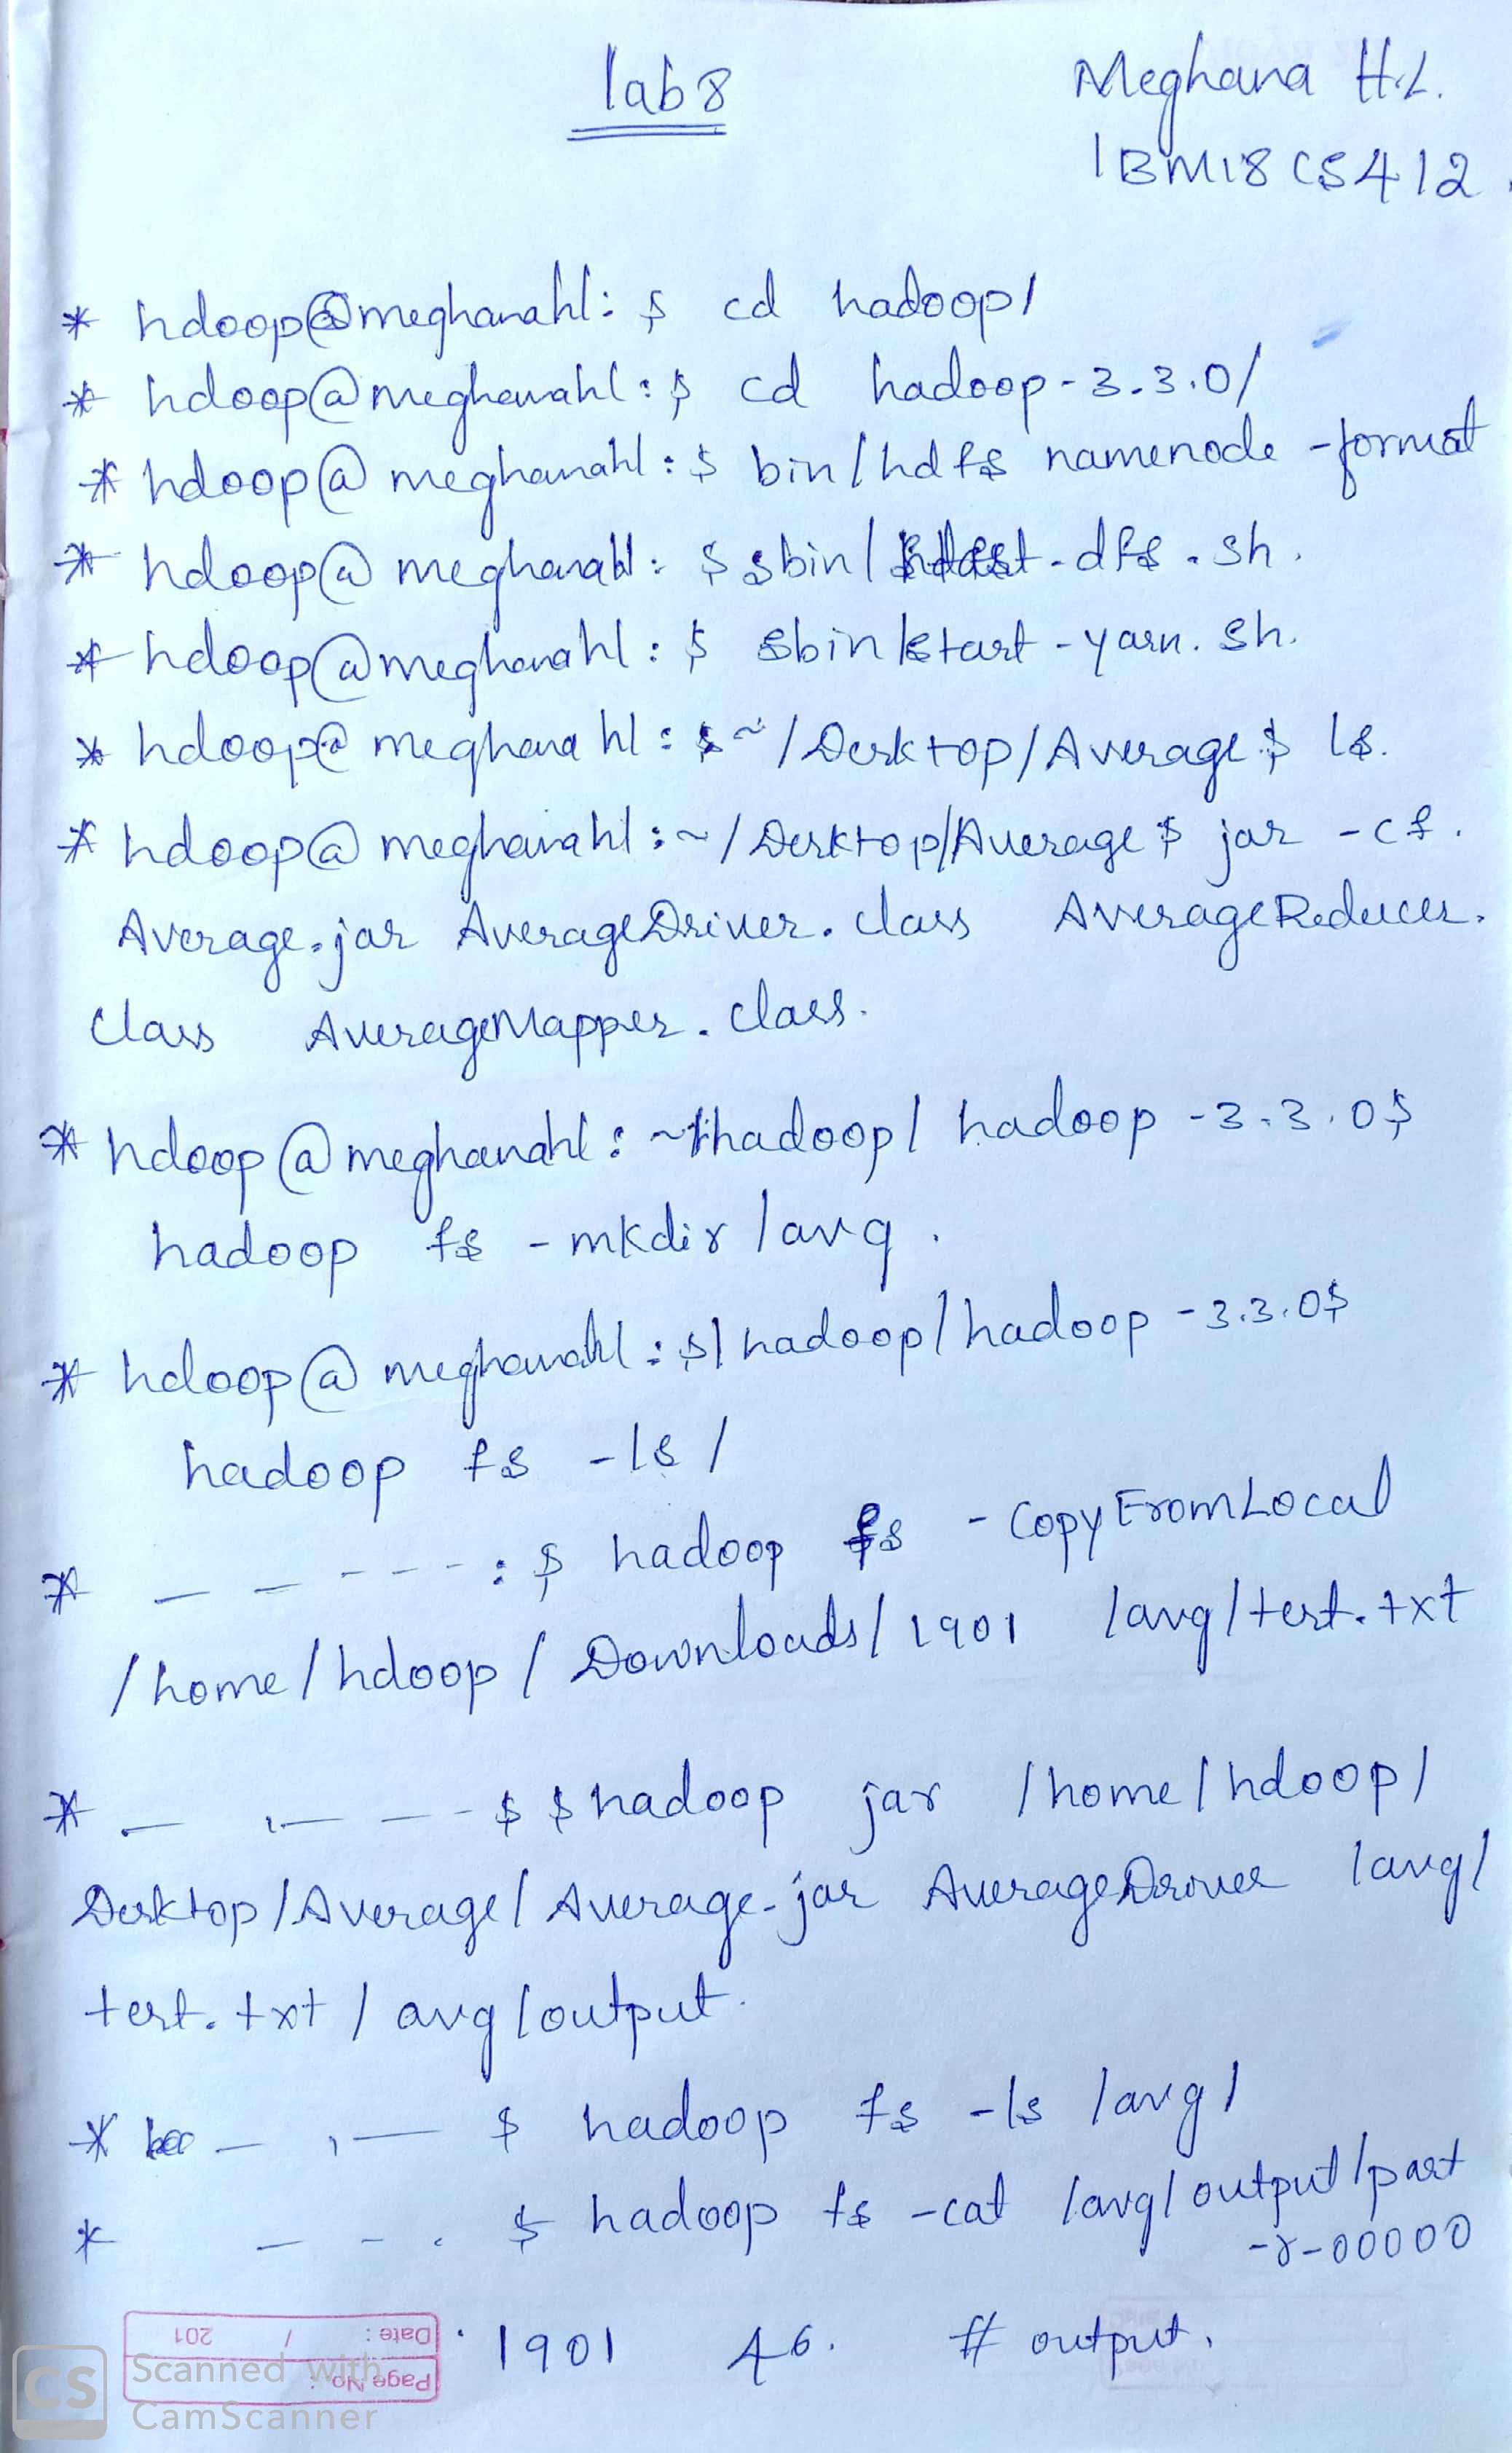 lab 8
Meghana H.L.
1BM18CS412.
* hdoop@meghanahl: $ cd hadoop/
* hdoop@meghanahl: $ cd hadoop-3.3.0/
* hdoop@meghanahl: $ bin/hdfs namenode -format
* hdoop@meghanahl: $ sbin/start-dfs.sh.
* hdoop@meghanahl: $ sbin/start-yarn.sh.
* hdoop@meghanahl: $~/Desktop/Average$ ls.
* hdoop@meghanahl:~/Desktop/Average$ jar -cf.
Average.jar AverageDriver.class AverageReducer.
Class AverageMapper.class.
* hdoop@meghanahl: ~/hadoop/hadoop-3.3.0$
hadoop fs -mkdir /avg.
* hdoop@meghanahl: $/hadoop/hadoop-3.3.0$
hadoop fs -ls /
* - - - - - - : $ hadoop fs -CopyFromLocal
/home/hdoop/Downloads/1901 /avg/test.txt
* - - - - $ $ hadoop jar /home/hdoop/
Desktop/Average/Average.jar AverageDriver /avg/
test.txt /avg/output.
* - , - $ hadoop fs -ls /avg/
* - - . $ hadoop fs -cat /avg/output/part
-r-00000
1901 46. # output.
Date: / 201
Page No.:
CS Scanned with
CamScanner